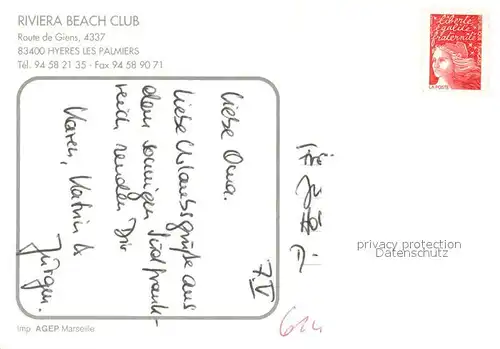 RIVIERA BEACH CLUB
Route de Giens, 4337
83400 HYERES LES PALMIERS
Tél. 94 58 21 35 - Fax 94 58 90 71
liberté
égalité
fraternité
LA POSTE
7.V
Liebe Oma.
Liebe Urlaubsgrüße aus
dem sonnigen Südfrank-
reich senden Dir
Karen, Katrin &
Jürgen.
privacy protection
Datenschutz
Imp. AGEP Marseille